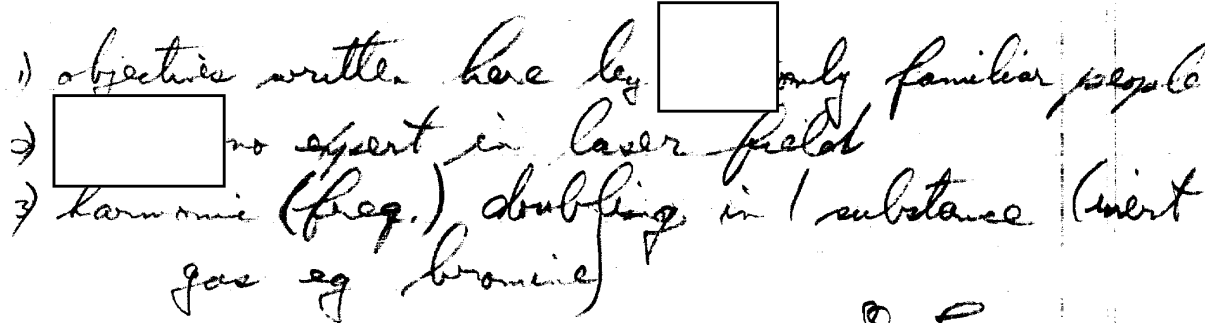 1) objectives written here by only familiar people
2) no expert in laser field
3) harmonic (freq.) doubling in 1 substance (inert
gas eg bromine)